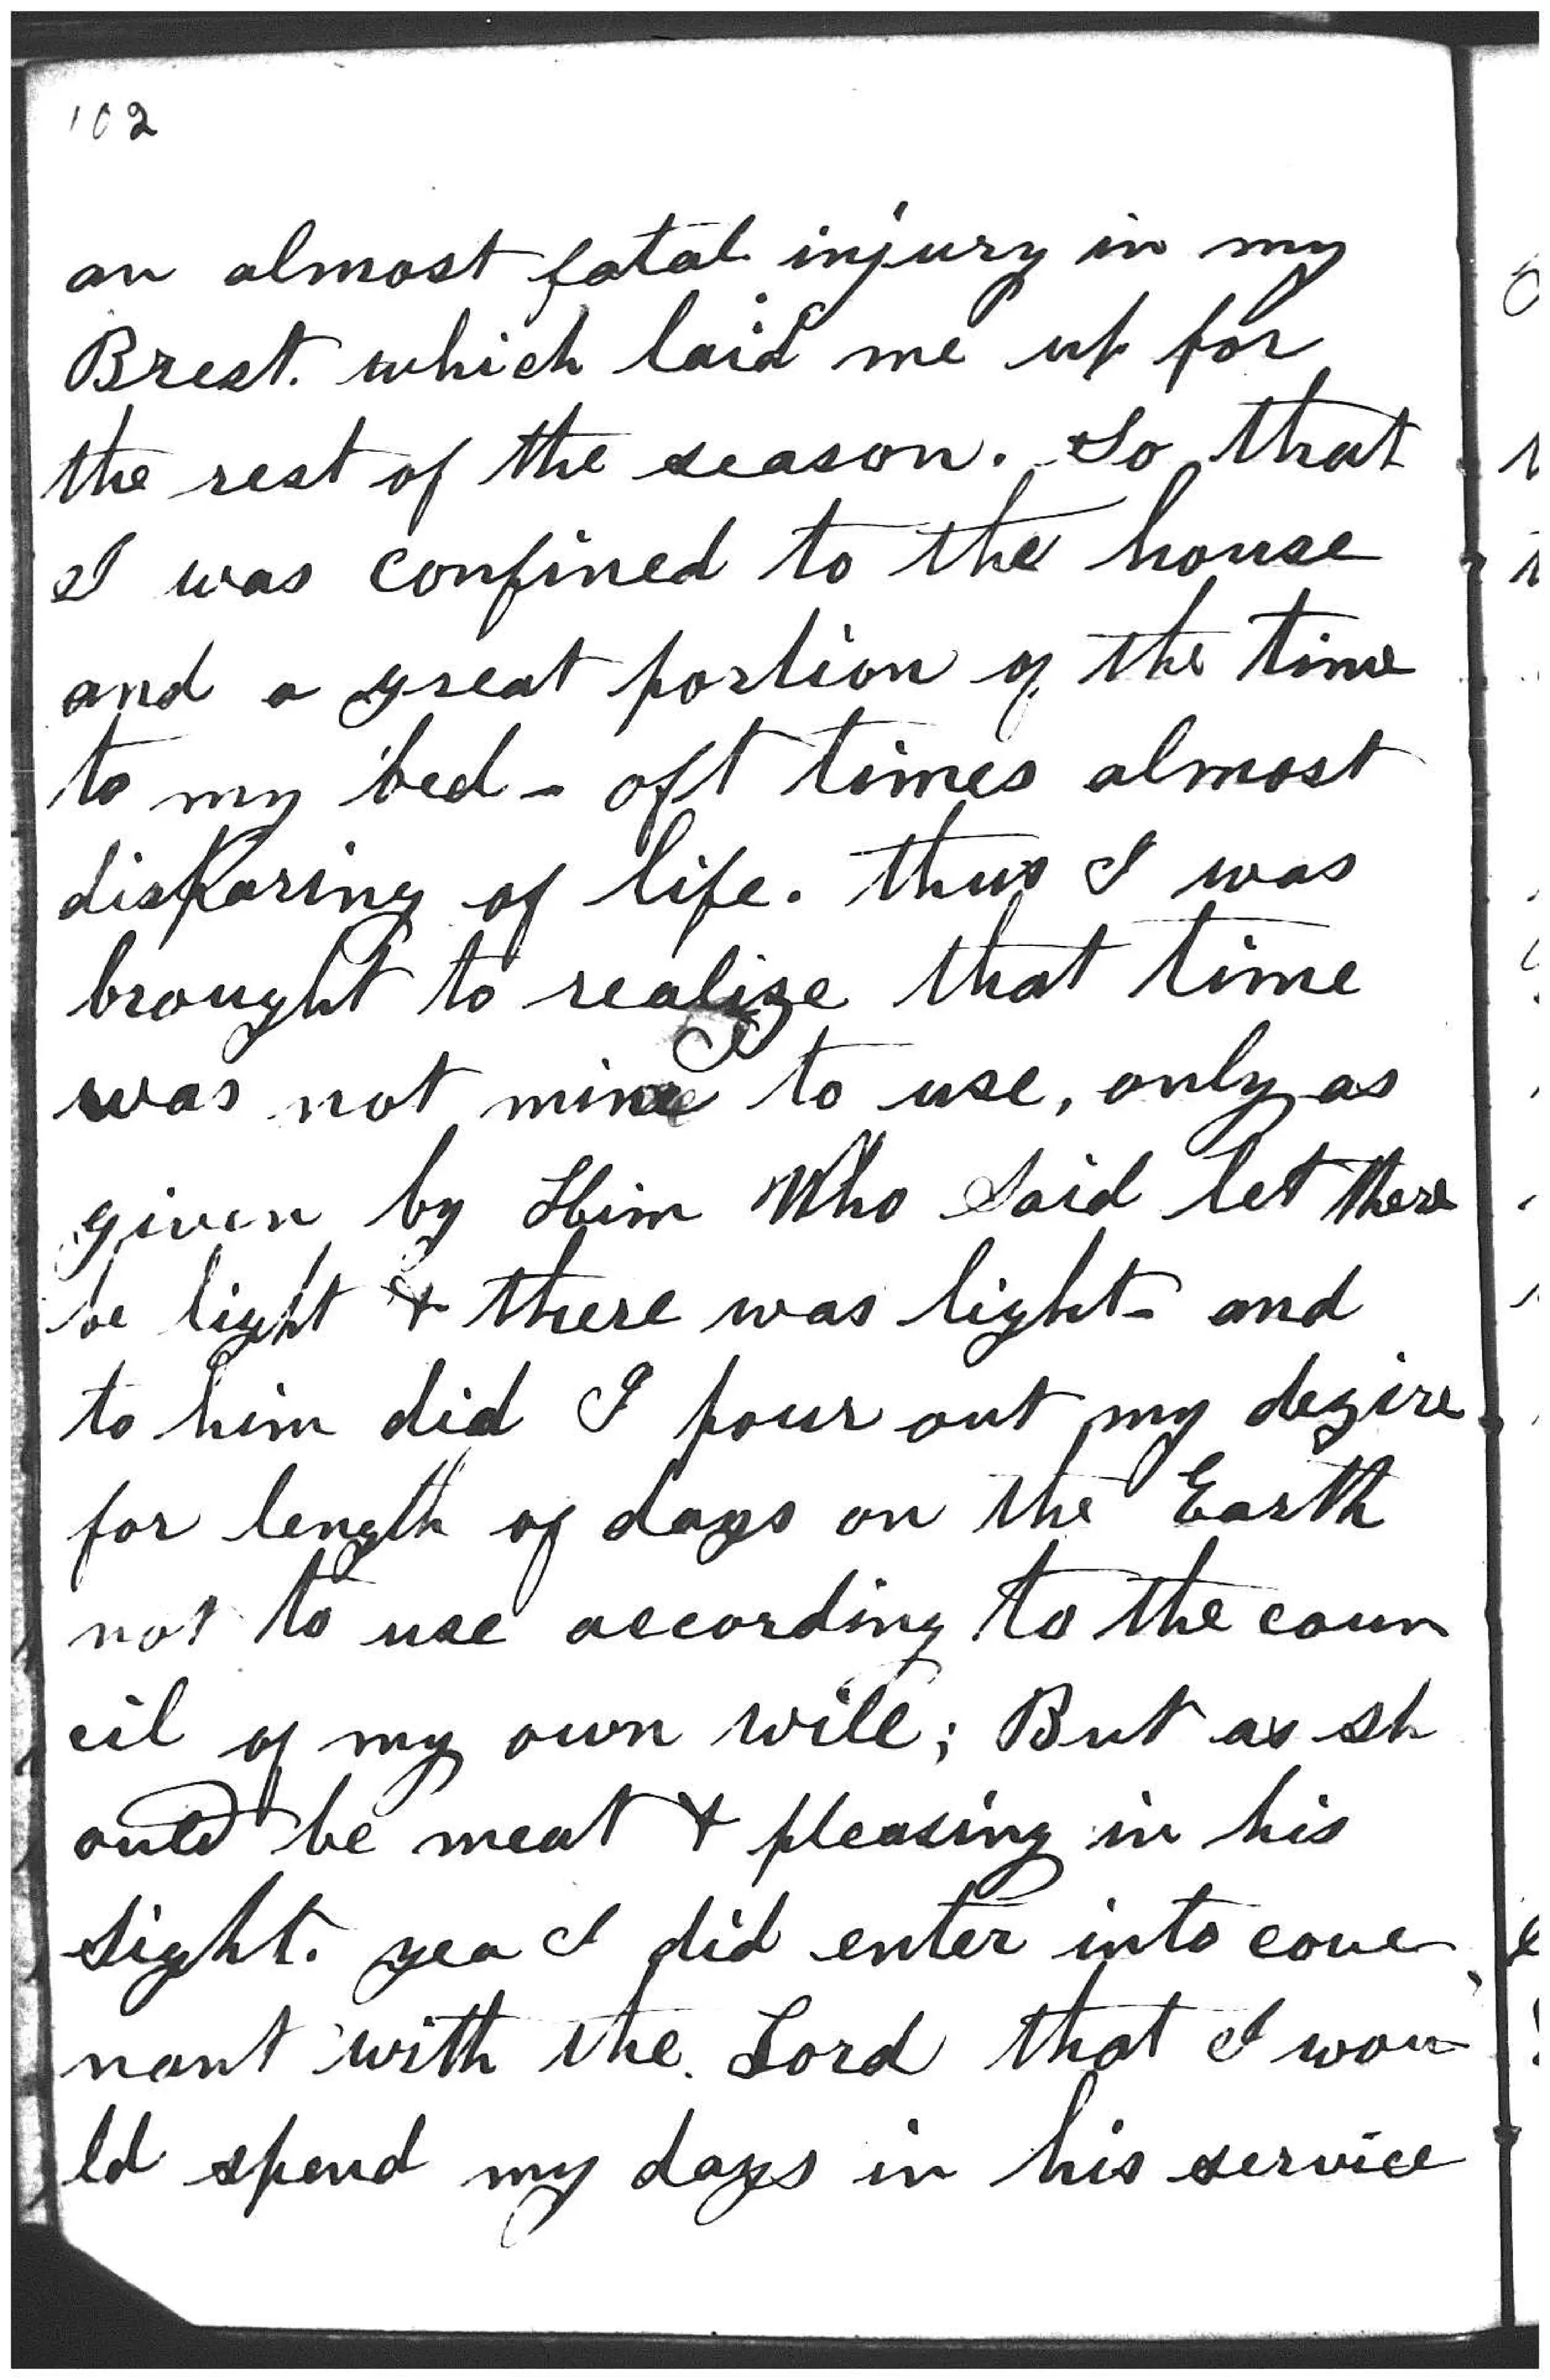 102
an almost fatal injury in my
Brest. which laid me up for
the rest of the season. So that
I was confined to the house
and a great portion of the time
to my bed - oft times almost
disparing of life. thus I was
brought to realize that time
was not mine to use, only as
given by Him Who Said let there
be light & there was light - and
to him did I pour out my dezire
for length of days on the Earth
not to use according to the coun
cil of my own will; But as sh
ould be meat & pleasing in his
sight. yea I did enter into cove
nant with the Lord that I wou
ld spend my days in his service